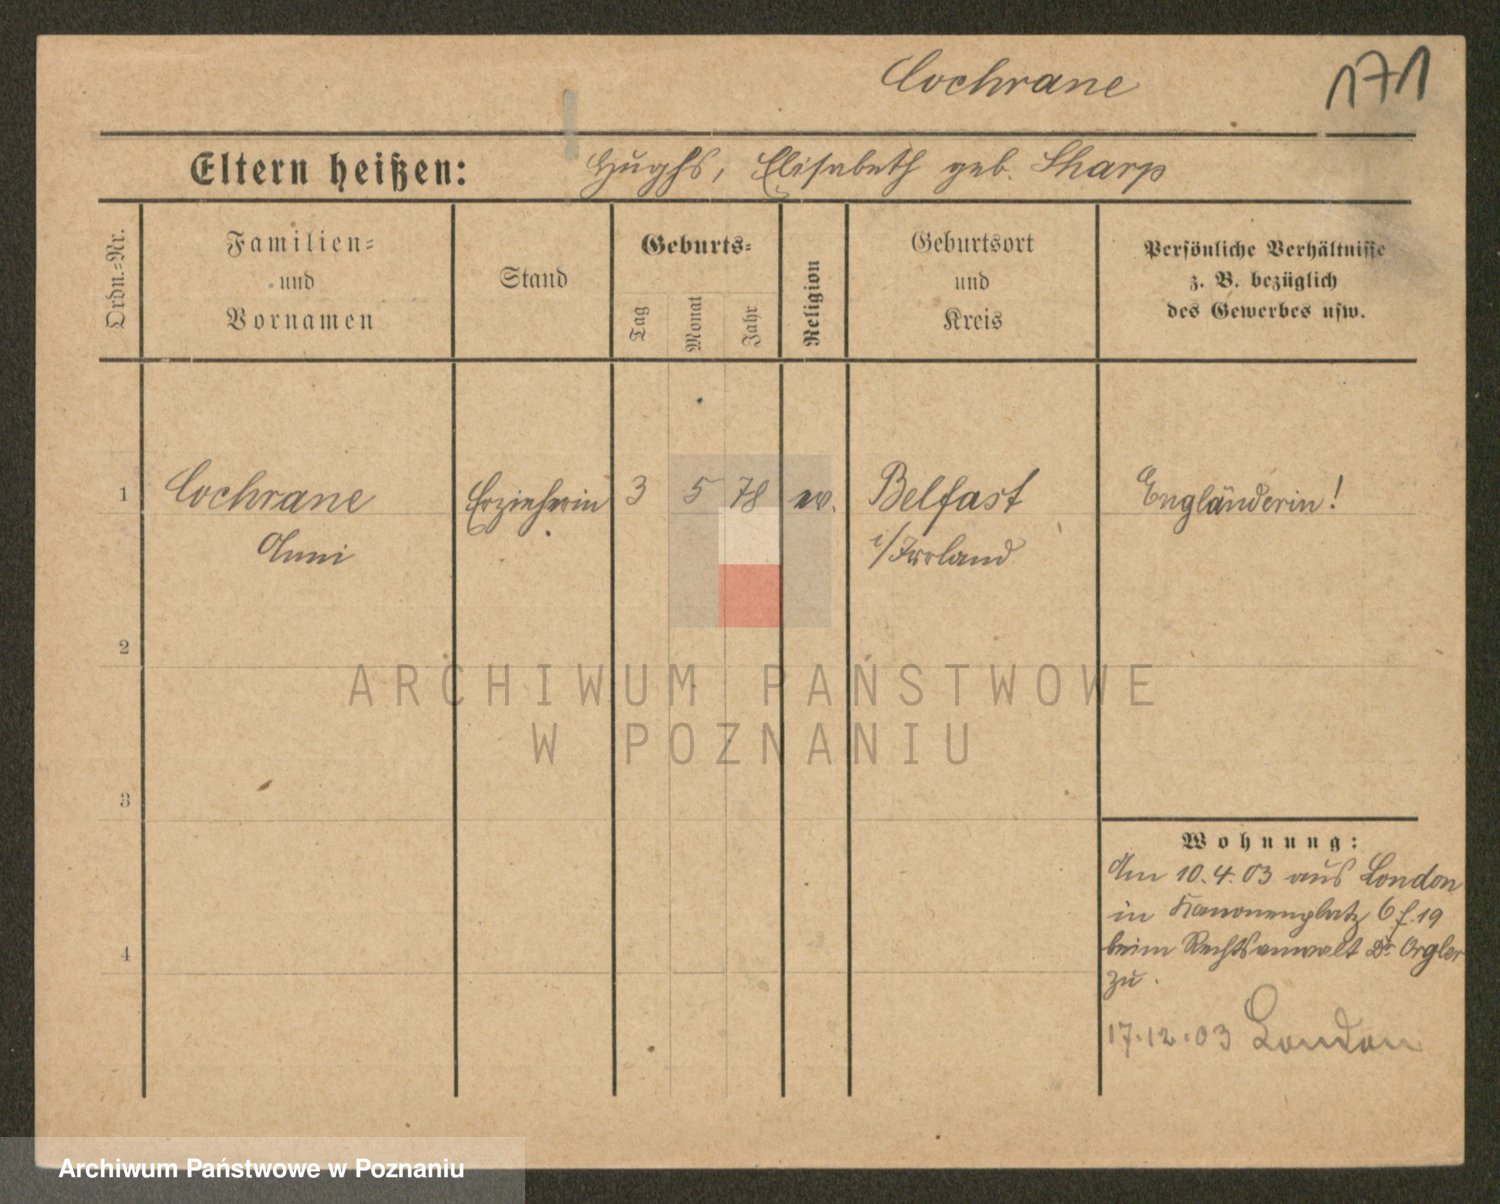 Cochrane
171
Eltern heißen: Hughs, Elisabeth geb. Sharp
Ordn.=Nr.
Familien=
und
Vornamen
Stand
Geburts=
Tag
Monat
Jahr
Religion
Geburtsort
und
Kreis
Persönliche Verhältnisse
z. B. bezüglich
des Gewerbes usw.
1 Cochrane Erzieherin 3 5 78 ev. Belfast Engländerin!
Anni i/Irrland
2
ARCHIWUM PAŃSTWOWE
W POZNANIU
3
Wohnung:
Am 10.4.03 aus London
in Kanonenplatz 6 f. 19
4 beim Rechtsanwalt Dr Orgler
zu.
17.12.03 London
Archiwum Państwowe w Poznaniu